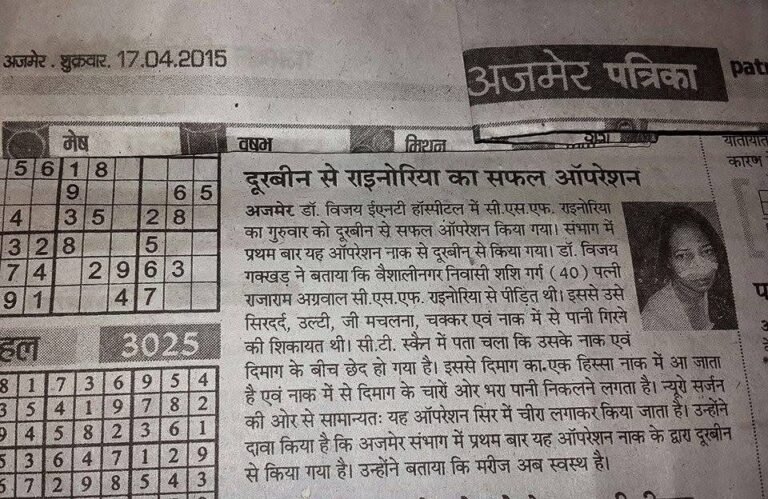 अजमेर . शुक्रवार. 17.04.2015
अजमेर पत्रिका
मेष
वृषभ
मिथुन
5 6 1 8
9 6 5
4 3 5 2 8
3 2 8 5
7 4 2 9 6 3
9 1 4 7
हल 3025
8 1 7 3 6 9 5 4
3 5 4 1 9 7 8 2
9 4 5 8 2 3 6 1
5 3 6 4 7 1 2 9
6 7 2 9 8 5 4 3
दूरबीन से राइनोरिया का सफल ऑपरेशन
अजमेर. डॉ. विजय ईएनटी हॉस्पीटल में सी.एस.एफ. राइनोरिया
का गुरुवार को दूरबीन से सफल ऑपरेशन किया गया। संभाग में
प्रथम बार यह ऑपरेशन नाक से दूरबीन से किया गया। डॉ. विजय
गक्खड़ ने बताया कि वैशालीनगर निवासी शशि गर्ग (40) पत्नी
राजाराम अग्रवाल सी.एस.एफ. राइनोरिया से पीड़ित थी। इससे उसे
सिरदर्द, उल्टी, जी मचलना, चक्कर एवं नाक में से पानी गिरने
की शिकायत थी। सी.टी. स्कैन में पता चला कि उसके नाक एवं
दिमाग के बीच छेद हो गया है। इससे दिमाग का एक हिस्सा नाक में आ जाता
है एवं नाक में से दिमाग के चारों ओर भरा पानी निकलने लगता है। न्यूरो सर्जन
की ओर से सामान्यतः यह ऑपरेशन सिर में चीरा लगाकर किया जाता है। उन्होंने
दावा किया है कि अजमेर संभाग में प्रथम बार यह ऑपरेशन नाक के द्वारा दूरबीन
से किया गया है। उन्होंने बताया कि मरीज अब स्वस्थ है।
यातायात
कारण